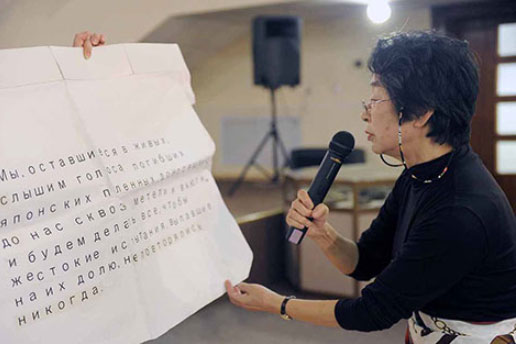 Мы, оставшиеся в живых,
слышим голоса погибших
японских пленных
до нас сквозь метели и вьюги,
и будем делать все, чтобы
жестокие испытания, выпавшие
на их долю, не повторились
никогда.